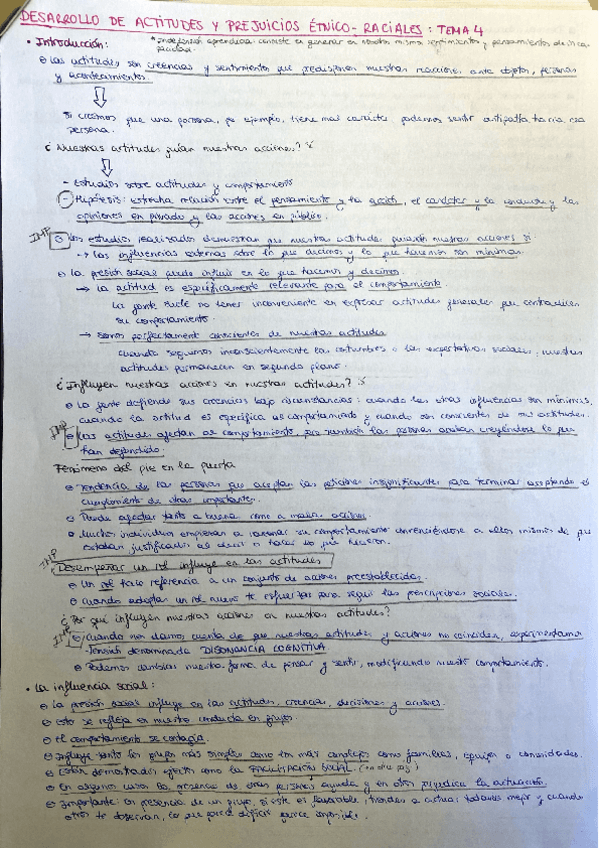 DESARROLLO DE ACTITUDES Y PREJUICIOS ÉTNICO-RACIALES: TEMA 4
• Introducción: * Indefensión aprendida: consiste en generar en nosotros mismos sentimientos y pensamientos de
Las actitudes son creencias y sentimientos que predisponen nuestras reacciones ante objetos, personas
y acontecimientos.
Si creemos que una persona, por ejemplo, tiene mal carácter podemos sentir antipatía hacia esa
persona.
¿Nuestras actitudes guían nuestras acciones?
- Estudios sobre actitudes y comportamiento
- Hipótesis: estrecha relación entre el pensamiento y la acción, el carácter y la conducta y las
opiniones en privado y las acciones en público.
IMP Los estudios realizados demuestran que nuestras actitudes guiarán nuestras acciones si:
→ Las influencias externas sobre lo que decimos y lo que hacemos son mínimas.
La presión social puede influir en lo que hacemos y decimos.
→ La actitud es específicamente relevante para el comportamiento
La gente suele no tener inconveniente en expresar actitudes generales que contradicen
su comportamiento.
→ Somos perfectamente conscientes de nuestras actitudes
Cuando seguimos inconscientemente las costumbres o las expectativas sociales, nuestras
actitudes permanecen en segundo plano.
¿Influyen nuestras acciones en nuestras actitudes?
La gente defiende sus creencias bajo circunstancias: cuando las otras influencias son mínimas,
cuando la actitud es específica al comportamiento y cuando son conscientes de sus actitudes.
IMP Las actitudes afectan al comportamiento, pero también las personas acaban creyéndose lo que
han defendido.
Fenómeno del pie en la puerta
Tendencia de las personas que aceptan las peticiones insignificantes para terminar aceptando el
cumplimiento de otras importantes.
Puede afectar tanto a buenas como a malas acciones
Muchos individuos empiezan a razonar su comportamiento convenciéndose a ellos mismos de que
estaban justificados al decir o hacer lo que hicieron.
IMP Desempeñar un rol influye en las actitudes
Un rol hace referencia a un conjunto de acciones preestablecidas.
Cuando adoptas un rol nuevo te esfuerzas para seguir las prescripciones sociales.
¿Por qué influyen nuestras acciones en nuestras actitudes?
IMP Cuando nos damos cuenta de que nuestras actitudes y acciones no coinciden, experimentamos
tensión denominada DISONANCIA COGNITIVA
Podemos cambiar nuestra forma de pensar y sentir, modificando nuestro comportamiento.
• La influencia social:
La presión social influye en las actitudes, creencias, decisiones y acciones.
Esto se refleja en nuestra conducta en grupo.
El comportamiento se contagia.
Influye tanto los grupos más simples como los más complejos como familias, equipos o comunidades.
Están demostrados efectos como la FACILITACIÓN SOCIAL
En algunos casos la presencia de otras personas ayuda y en otros perjudica la actuación.
Importante: en presencia de un grupo, si este es favorable, tiendes a actuar todavía mejor y cuando
otros te observan, lo que parece difícil parece imposible.